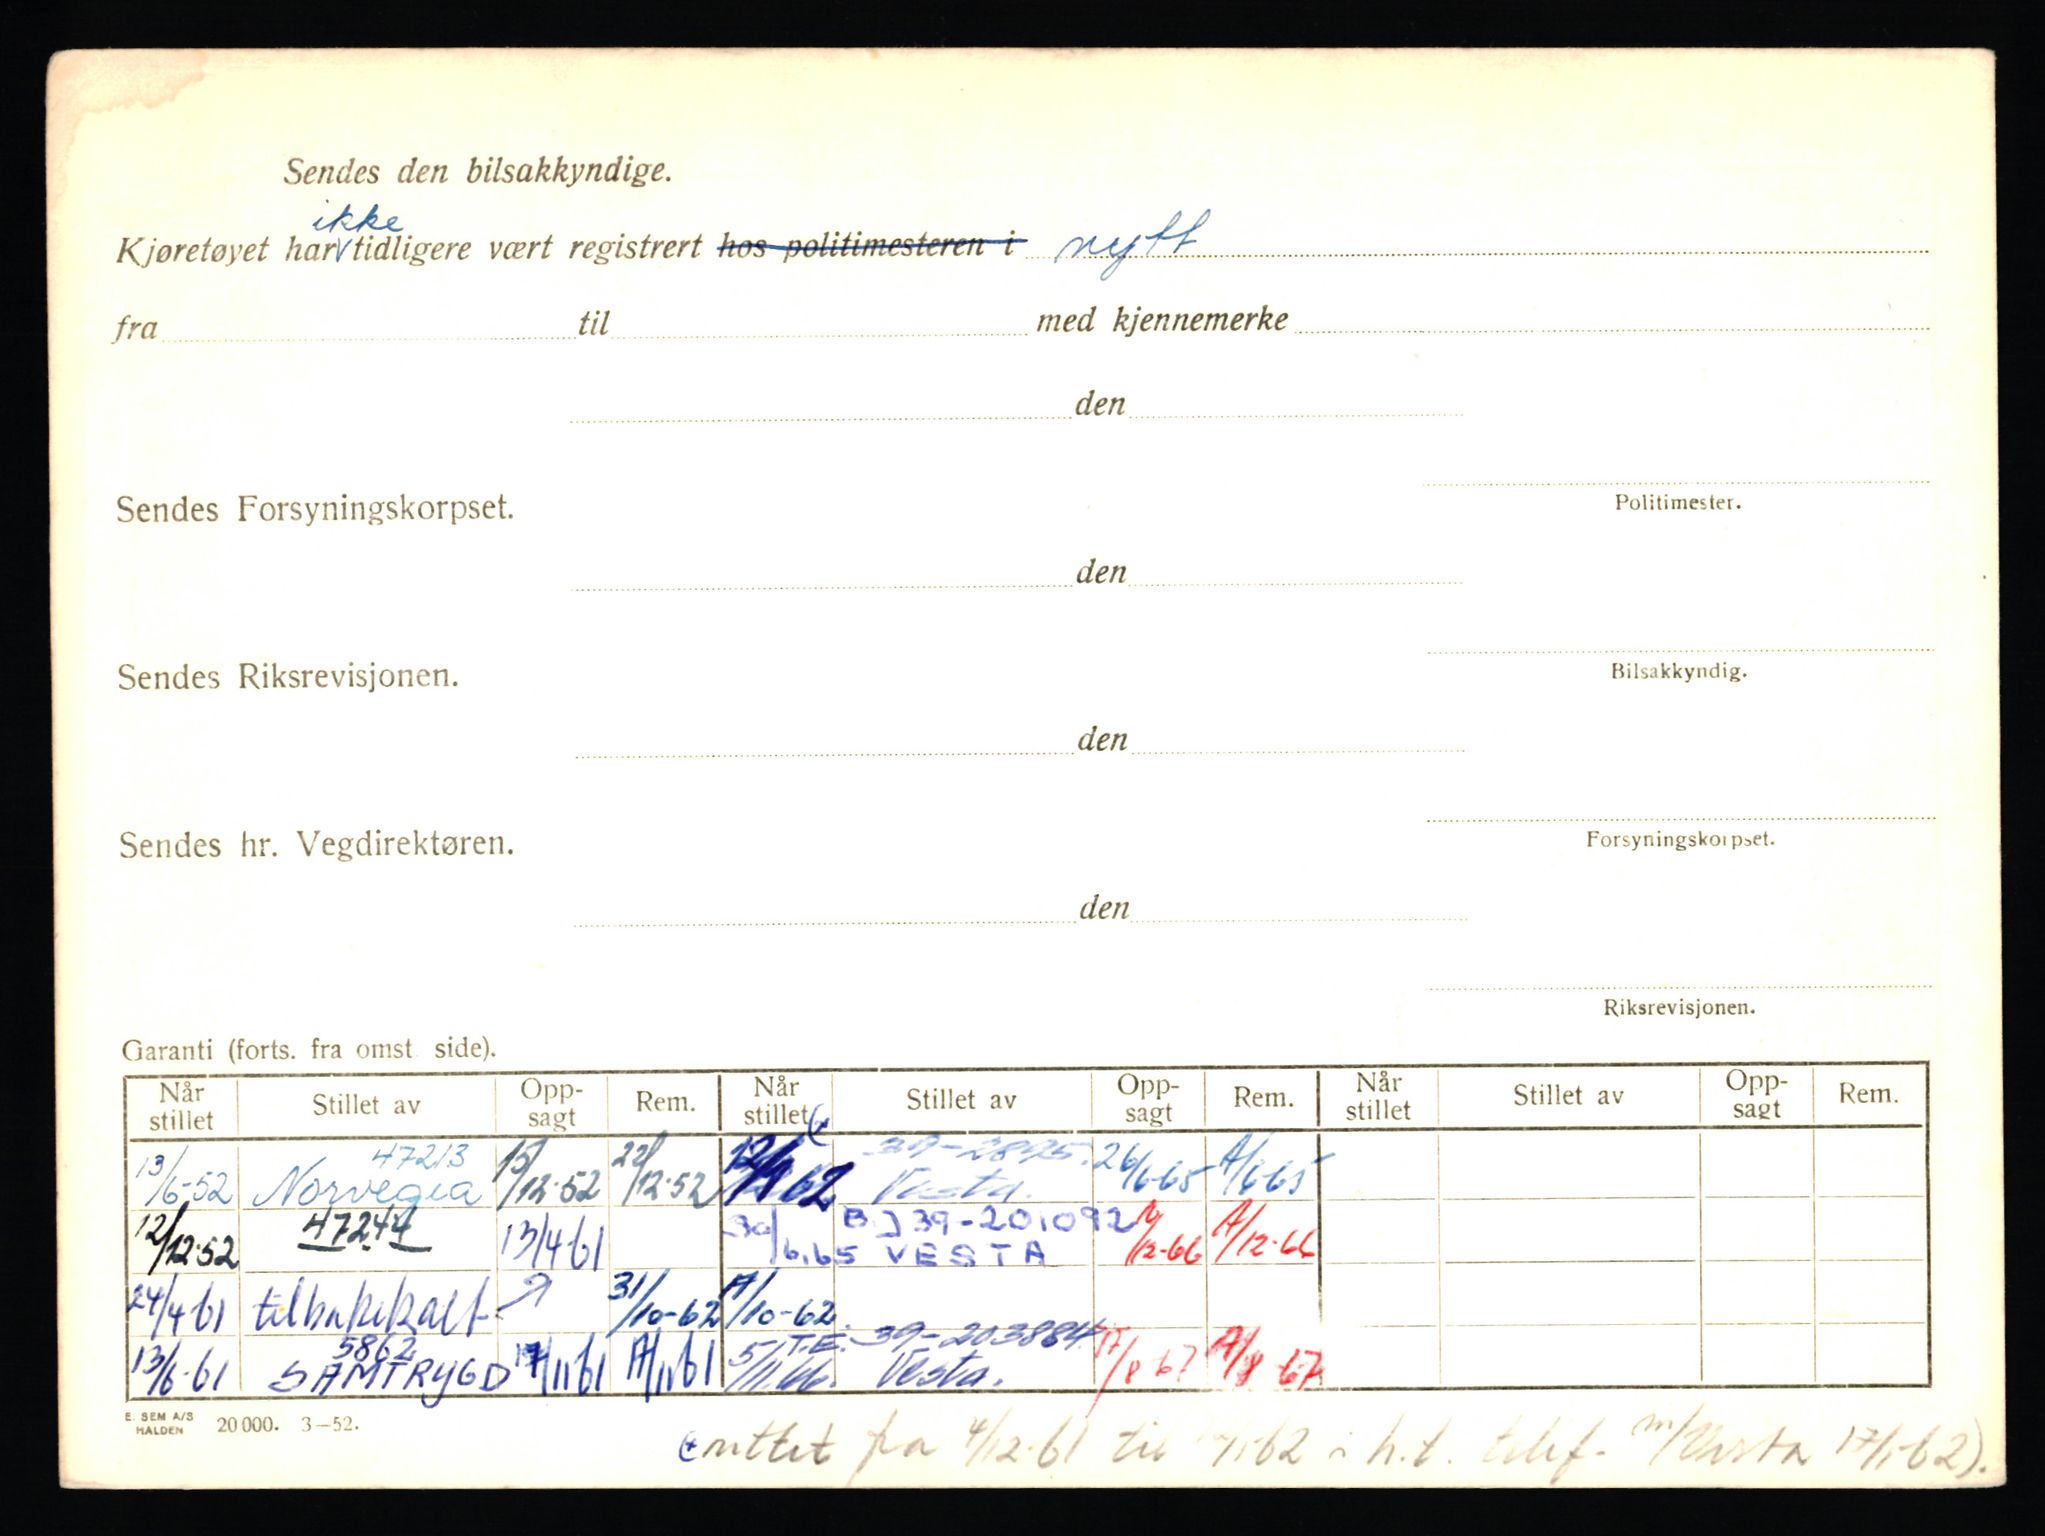 Sendes den bilsakkyndige.
ikke
Kjøretøyet har tidligere vært registrert hos politimesteren i nytt
fra til med kjennemerke
den
Politimester.
Sendes Forsyningskorpset.
den
Bilsakkyndig.
Sendes Riksrevisjonen.
den
Forsyningskorpset.
Sendes hr. Vegdirektøren.
den
Riksrevisjonen.
Garanti (forts. fra omst. side).
Når stillet Stillet av Opp-sagt Rem. Når stillet Stillet av Opp-sagt Rem. Når stillet Stillet av Opp-sagt Rem.
13/6-52 47213 Norvegia 15/12-52 22/12-52 62 39-2895. Vesta. 26/6-65 /6-65
12/12-52 47244 13/4-61 30/6.65 B.J 39-201092 VESTA /12-66 /12-66
24/4-61 tilbakekalt 31/10-62 /10-62.
13/6-61 5862 SAMTRYGD 17/11 61 /11 61 5/11.66. T.E. 39-203884. Vesta. 17/8-67 /8-67
E. SEM A/S HALDEN 20 000. 3—52.
enttet fra 4/12-61 til /1-62 i h.t. telef. m/Vesta 17/1-62).